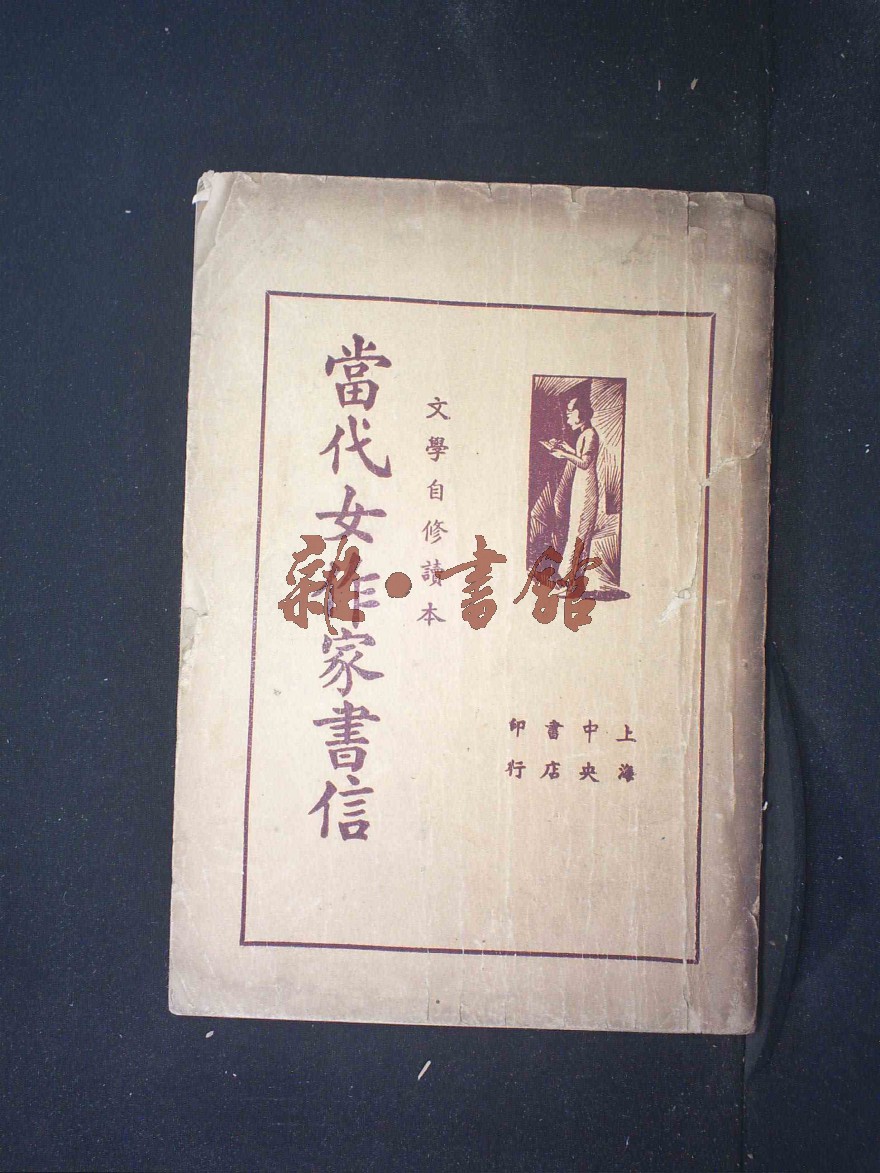 當代女作家書信
文學自修讀本
上海
中央
書店
印行
雜·書館